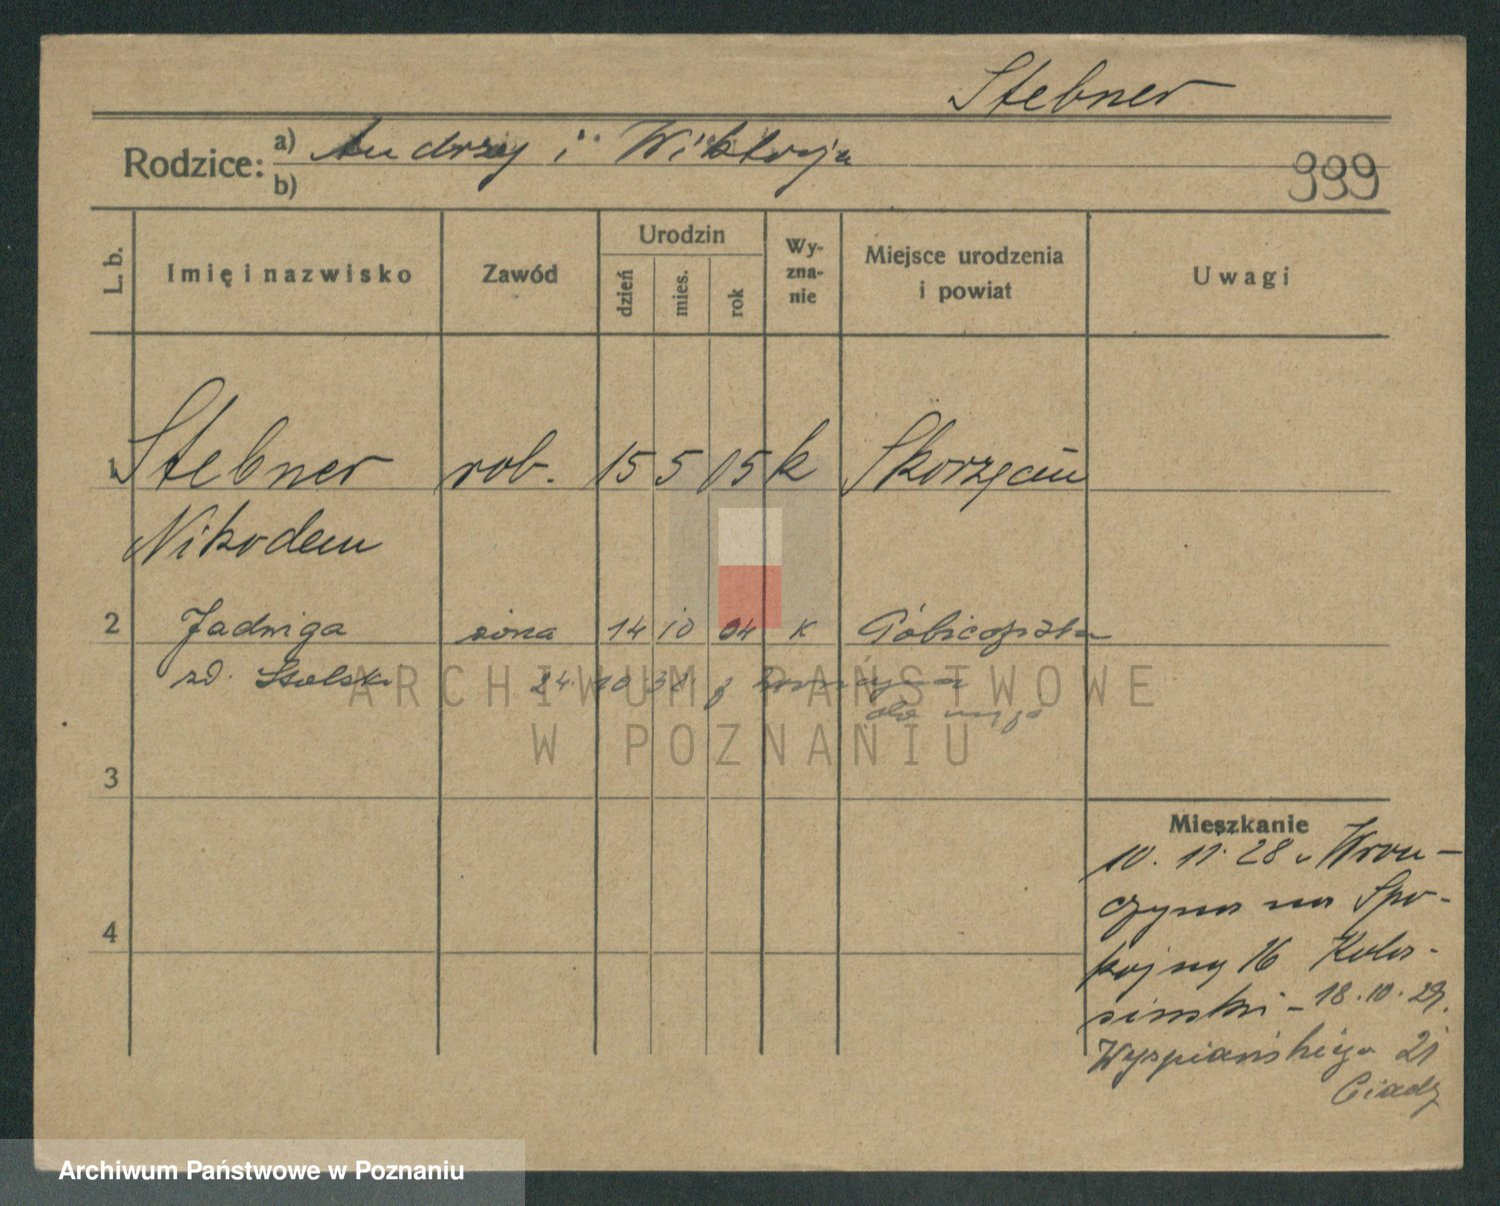 Stebner
Rodzice: a) Andrzej i Wiktorja
b)
999
L. b. Imię i nazwisko Zawód Urodzin dzień mies. rok Wyznanie Miejsce urodzenia i powiat Uwagi
1 Stebner rob. 15 5 05 k Skorzęcin
Nikodem
2 Jadwiga żona 14 10 04 k
zd. 24. 10 38.
ARCHIWUM PAŃSTWOWE
W POZNANIU
3
4
Mieszkanie
10. 11. 28 Wron-
czyna na Spo-
kojny 16 Kolo-
sinski - 18.10.29.
Wyspiańskiego 21
Archiwum Państwowe w Poznaniu